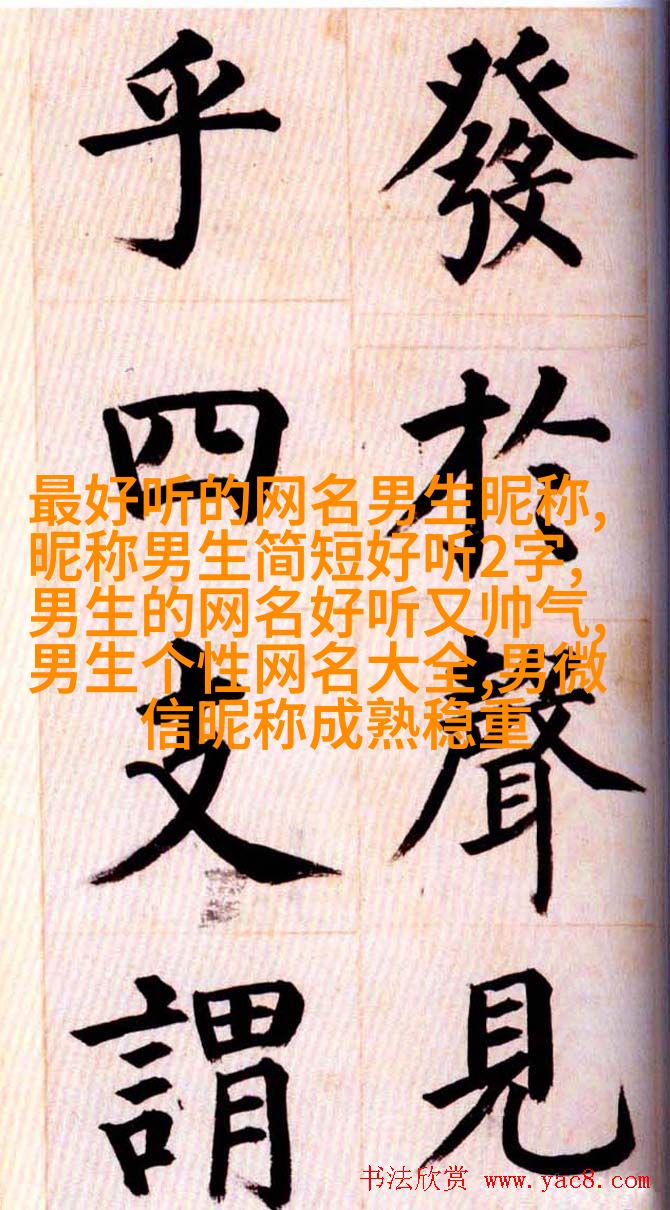 發於聲見
乎四支謂
最好听的网名男生昵称,
昵称男生简短好听2字,
男生的网名好听又帅气,
男生个性网名大全,男微
信昵称成熟稳重
书法欣赏 www.yac8.com